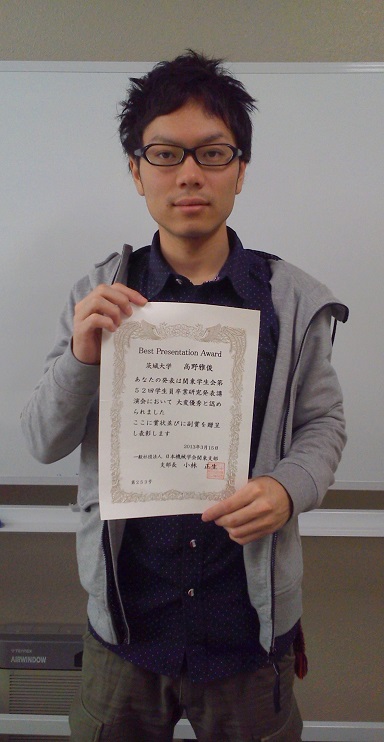 Best Presentation Award
茨城大学 高野雅俊
あなたの発表は関東学生会第
５２回学生員卒業研究発表講
演会において 大変優秀と認め
られました
ここに賞状並びに副賞を贈呈
し表彰します
2013年3月15日
一般社団法人 日本機械学会関東支部
支部長 小林 正生
AIRWINDOW